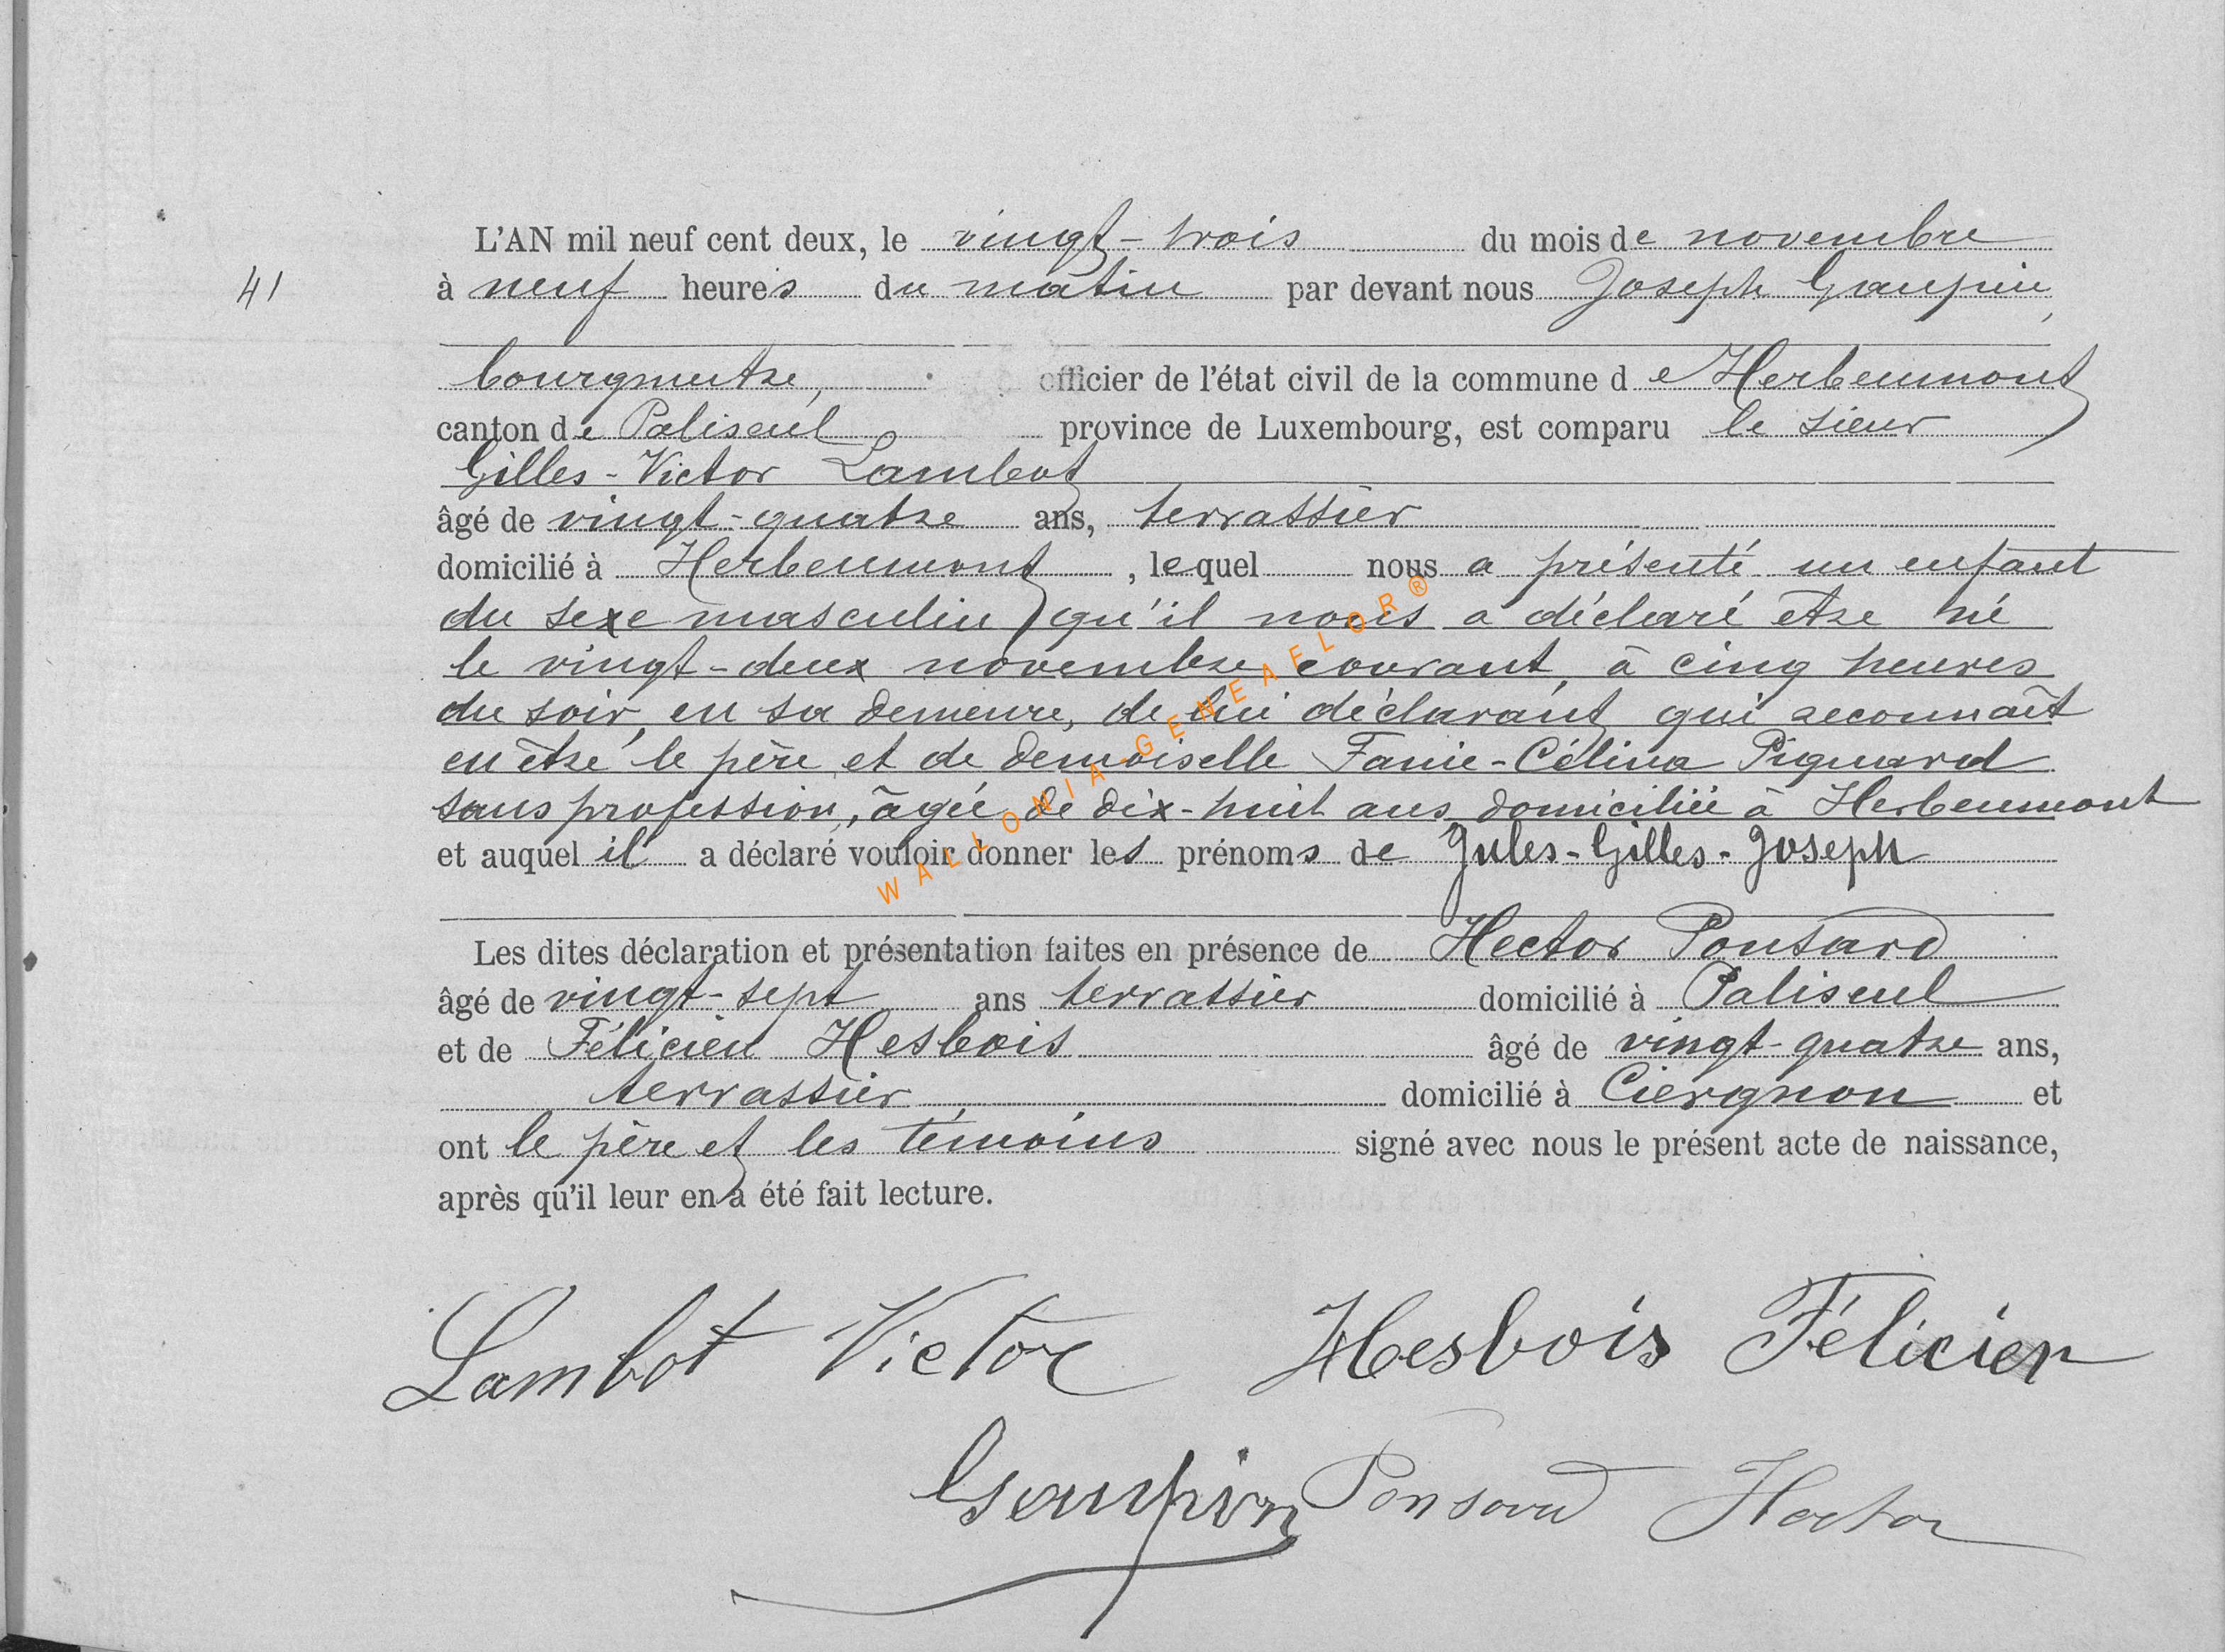 L'AN mil neuf cent deux, le vingt-trois du mois de novembre
41 à neuf heures du matin par devant nous Joseph Gaupin,
bourgmestre, officier de l'état civil de la commune de Herbeumont
canton de Paliseul province de Luxembourg, est comparu le sieur
Gilles-Victor Lambot
âgé de vingt-quatre ans, terrassier
domicilié à Herbeumont, lequel nous a présenté un enfant
du sexe masculin qu'il nous a déclaré etre né
le vingt-deux novembre courant, à cinq heures
du soir, en sa demeure, de lui déclarant qui reconnaît
en être le père et de demoiselle Fanie-Célina Pignard
sans profession, âgée de dix-huit ans domiciliée à Herbeumont
et auquel il a déclaré vouloir donner les prénoms de Jules-Gilles-Joseph
Les dites déclaration et présentation faites en présence de Hector Ponsard
âgé de vingt-sept ans terrassier domicilié à Paliseul
et de Félicien Hesbois âgé de vingt-quatre ans,
terrassier domicilié à Ciergnon et
ont le père et les témoins signé avec nous le présent acte de naissance,
après qu'il leur en a été fait lecture.
Lambot Victor Hesbois Félicien
Gaupin Ponsard Hector
WALLONIA-GENEAFLOR®